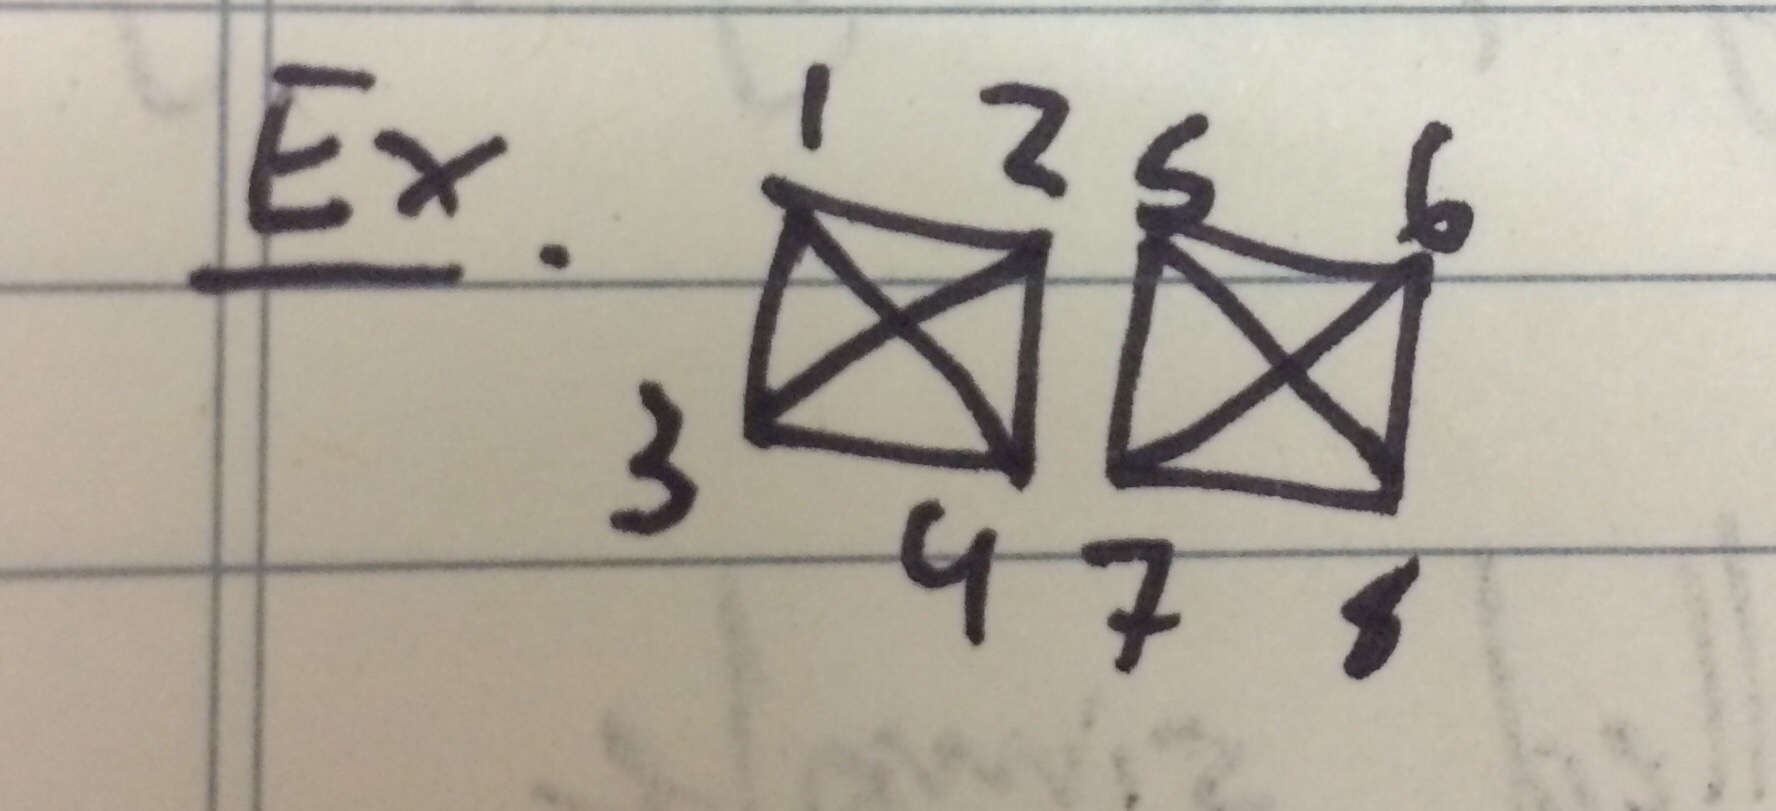 Ex.
1 2 5 6
3 4 7 8